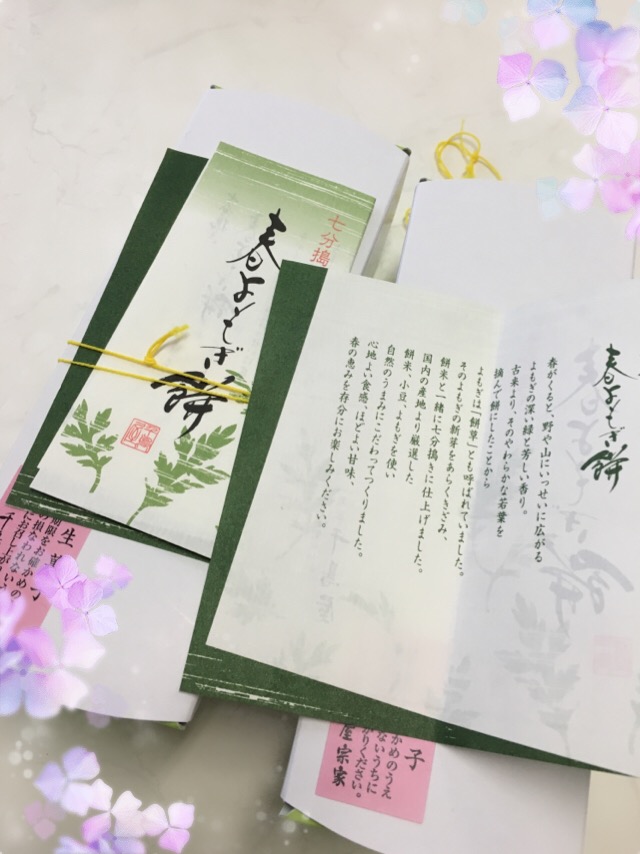 七分搗
春よもぎ餅
春よもぎ餅
春がくると、野や山にいっせいに広がる
よもぎの深い緑と芳しい香り。
古来より、そのやわらかな若葉を
摘んで餅にしたことから
よもぎは「餅草」とも呼ばれていました。
そのよもぎの新芽をあらくきざみ、
餅米と一緒に七分搗きに仕上げました。
国内の産地より厳選した
餅米、小豆、よもぎを使い
自然のうまみにこだわってつくりました。
心地よい食感、ほどよい甘味、
春の恵みを存分にお楽しみください。
生菓子
期限をお確かめの
損なわれない
にお召
子
かめのうえ
ないうちに
がりください。
屋宗家